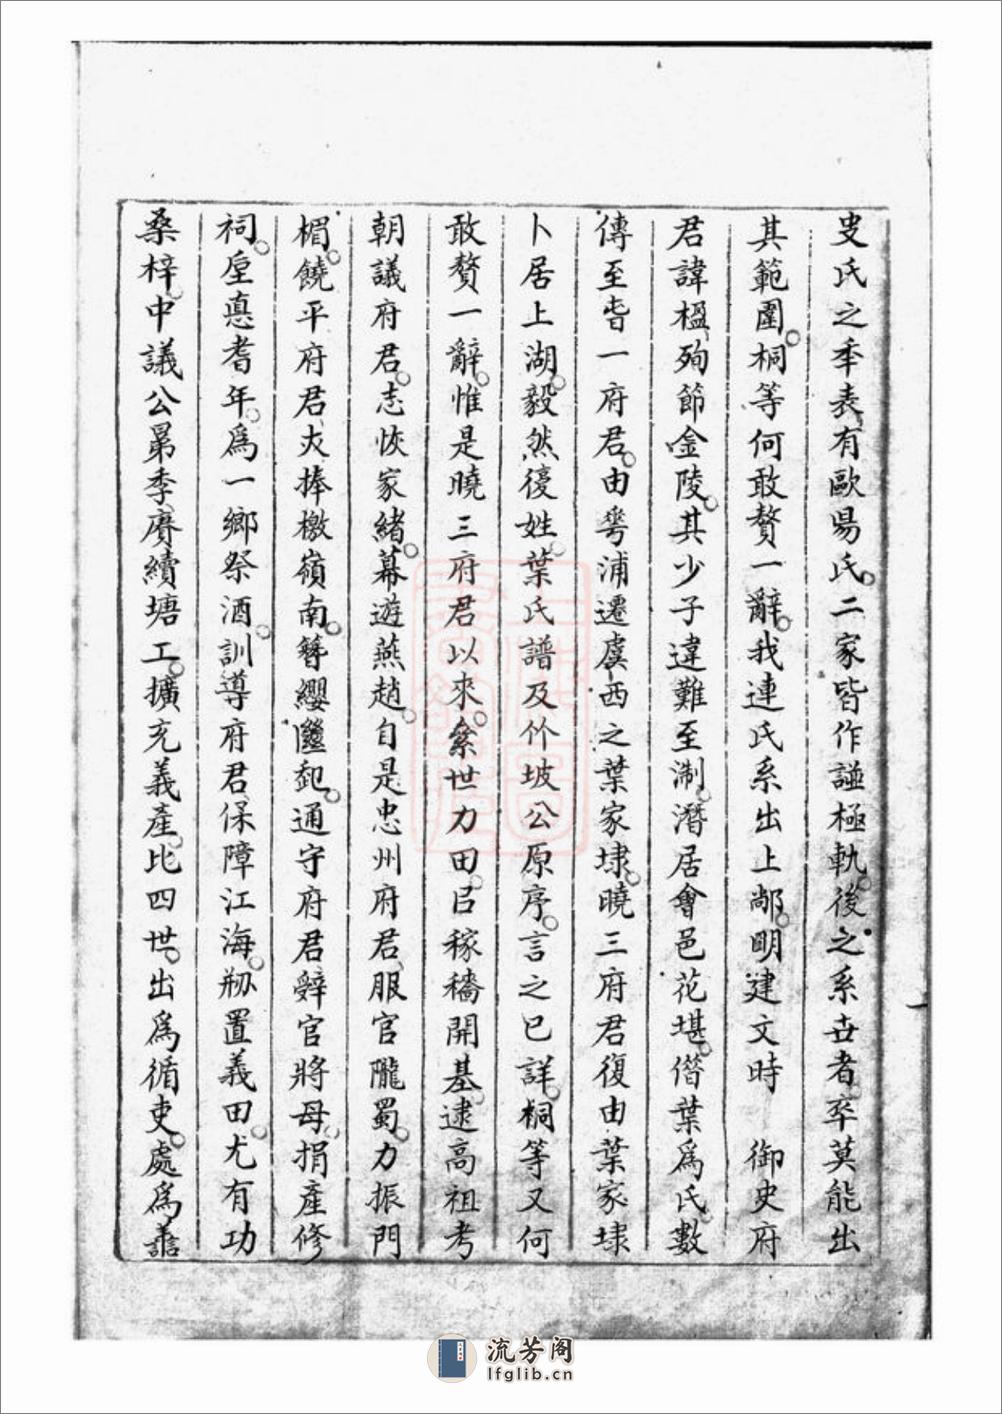 史氏之年表有歐昜氏二家皆作譜極軌後之系世者卒莫能出
其範圍桐等何敢贅一辭我連氏系出上鄺明建文時 御史府
君諱楹殉節金陵其少子違難至淛潛居會邑花堪偺葉爲氏數
傳至旹一府君由雩浦遷虞西之葉家埭曉三府君復由葉家埭
卜居上湖毅然復姓葉氏譜及竹坡公原序言之已詳桐等又何
敢贅一辭惟是曉三府君以來絫世力田㠯稼穡開基逮高祖考
朝議府君志恢家緒幕遊燕趙自是忠州府君服官隴蜀力振門
楣饒平府君夾捧檄嶺南簪纓繼起通守府君辤官將母捐產修
祠屋悳耆年爲一鄉祭酒訓導府君保障江海剏置義田尤有功
桑梓中議公晜季賡續塘工擴充義產比四世出爲循吏處爲譱
流芳阁
lfglib.cn